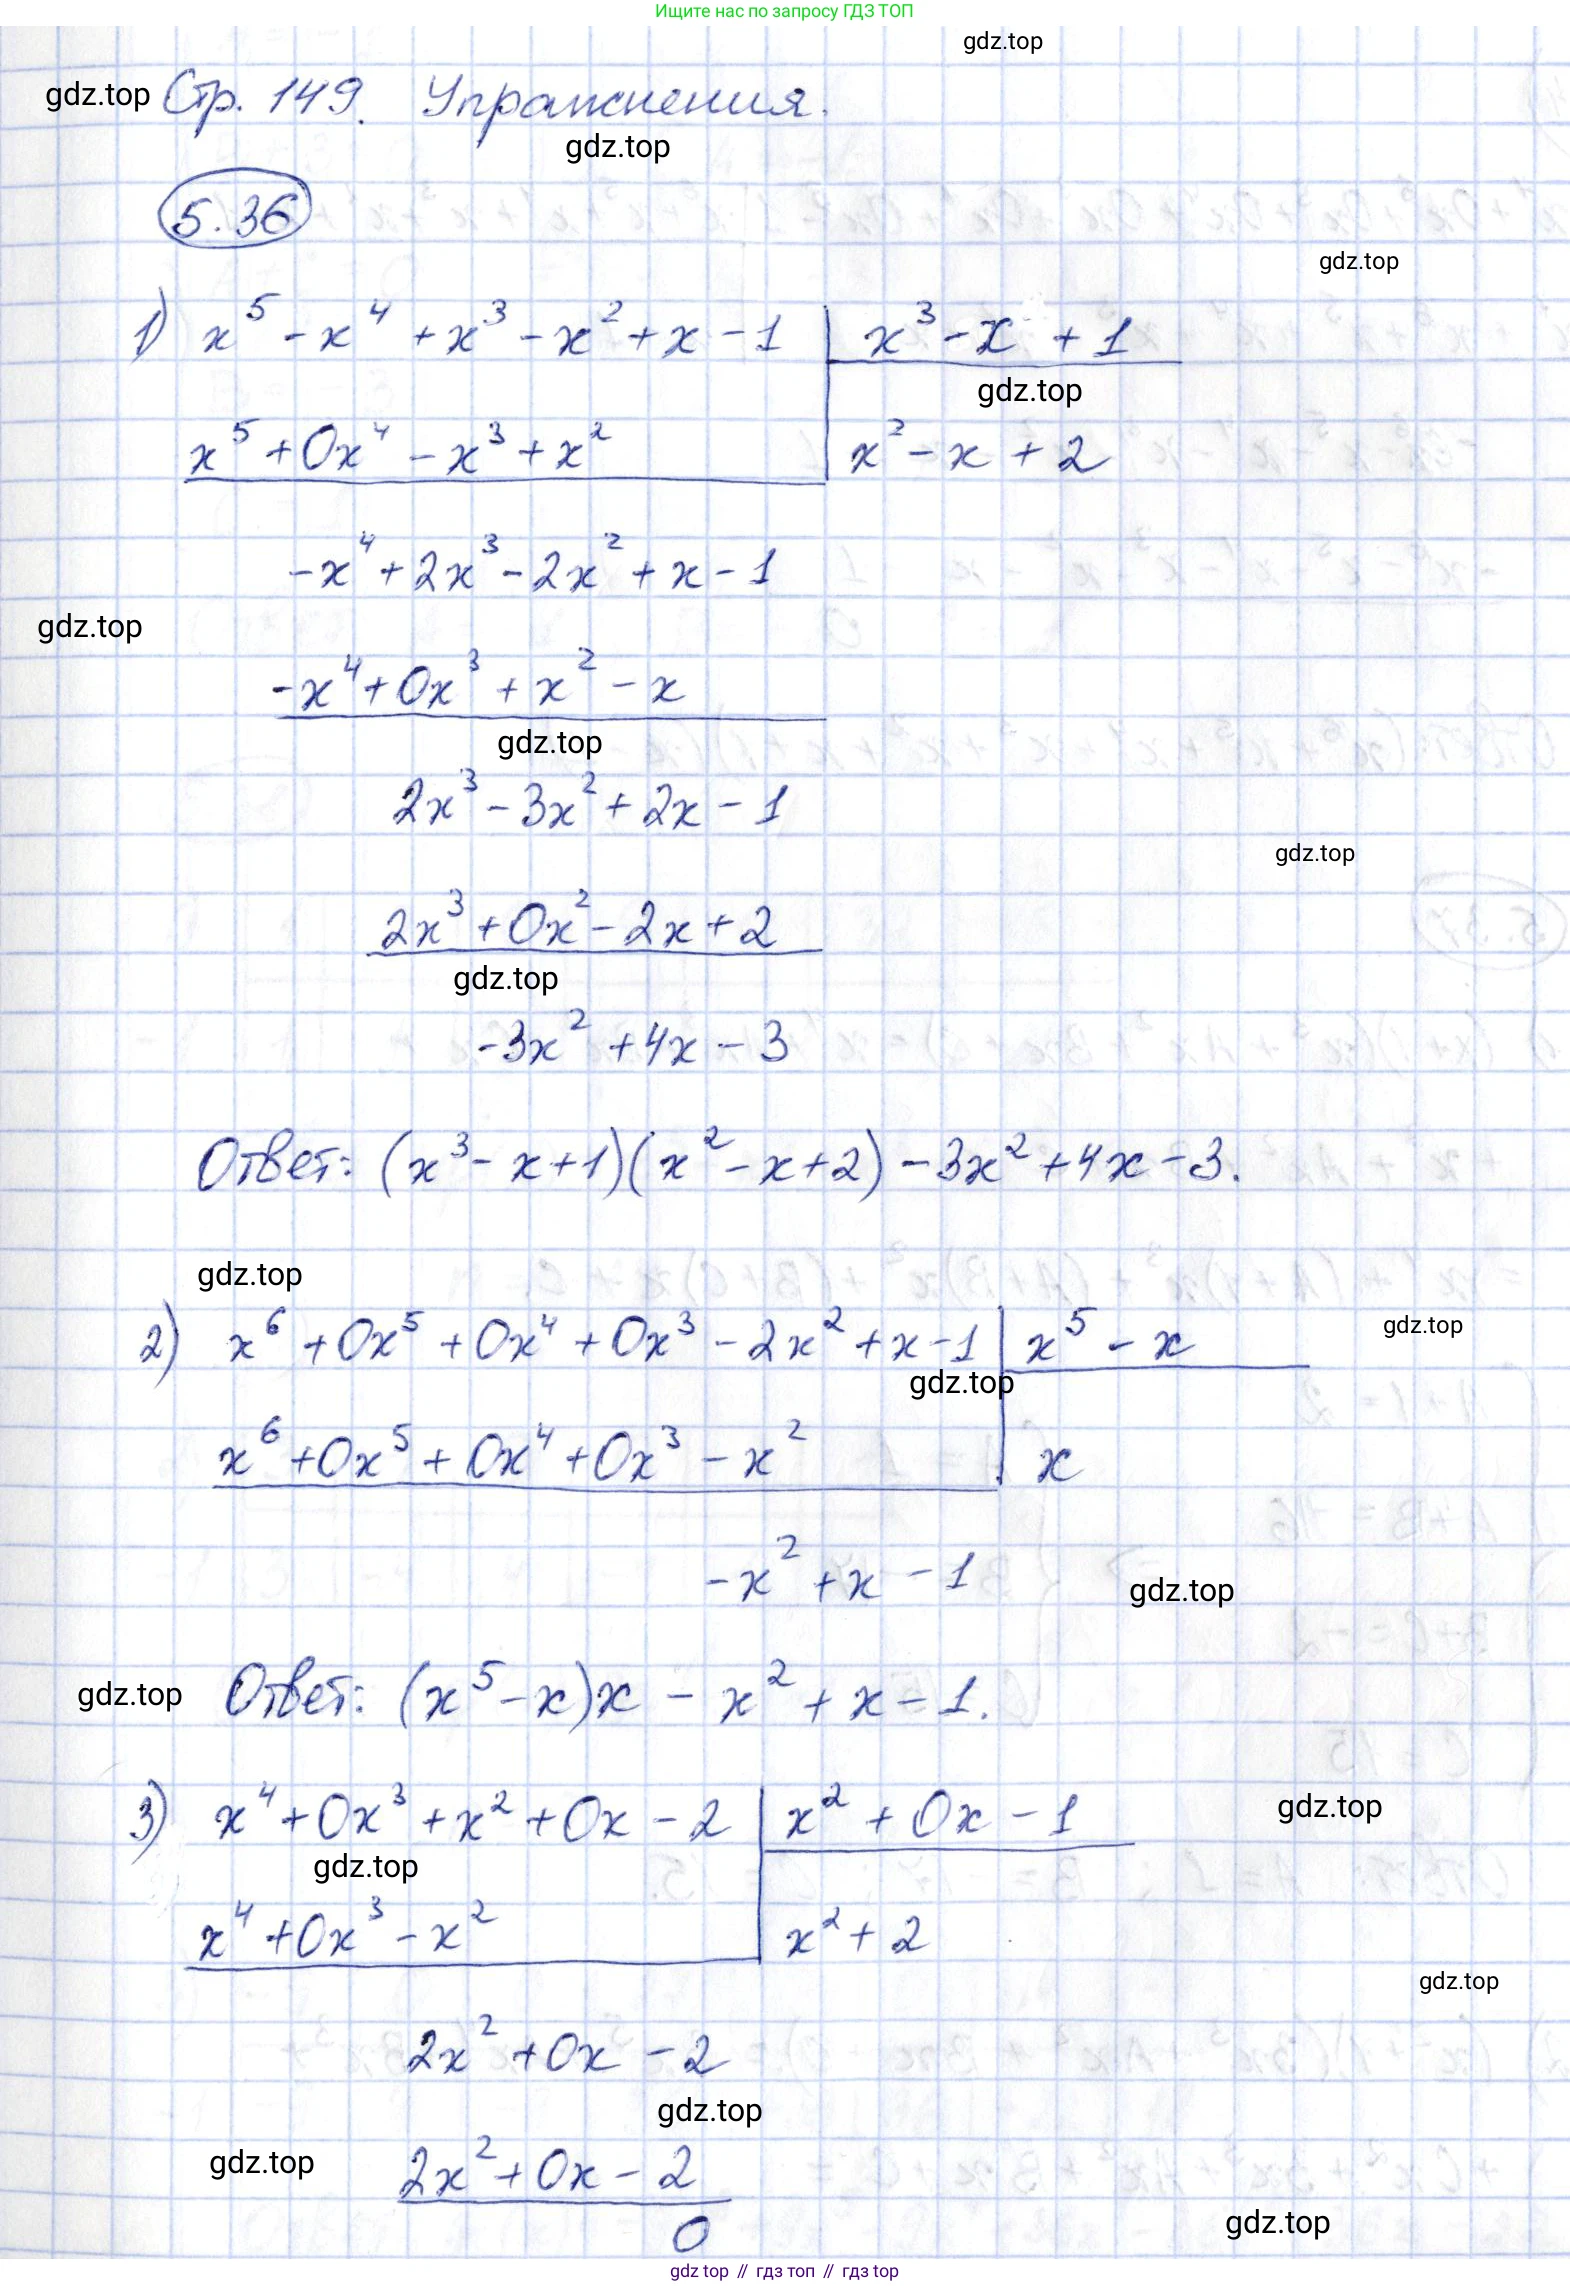 Ищите нас по запросу ГДЗ ТОП
gdz.top
gdz.top Стр. 149. Упражнения.
gdz.top
5.36
gdz.top
1) x⁵ - x⁴ + x³ - x² + x - 1 | x³ - x + 1
gdz.top
x⁵ + 0x⁴ - x³ + x² | x² - x + 2
-x⁴ + 2x³ - 2x² + x - 1
gdz.top
-x⁴ + 0x³ + x² - x
gdz.top
2x³ - 3x² + 2x - 1
gdz.top
2x³ + 0x² - 2x + 2
gdz.top
-3x² + 4x - 3
Ответ: (x³ - x + 1)(x² - x + 2) - 3x² + 4x - 3.
gdz.top
gdz.top
2) x⁶ + 0x⁵ + 0x⁴ + 0x³ - 2x² + x - 1 | x⁵ - x
gdz.top
x⁶ + 0x⁵ + 0x⁴ + 0x³ - x² | x
-x² + x - 1
gdz.top
gdz.top Ответ: (x⁵ - x)x - x² + x - 1.
3) x⁴ + 0x³ + x² + 0x - 2 | x² + 0x - 1
gdz.top
gdz.top
x⁴ + 0x³ - x² | x² + 2
gdz.top
2x² + 0x - 2
gdz.top
gdz.top
2x² + 0x - 2
0
gdz.top
gdz top // гдз топ // гдз top